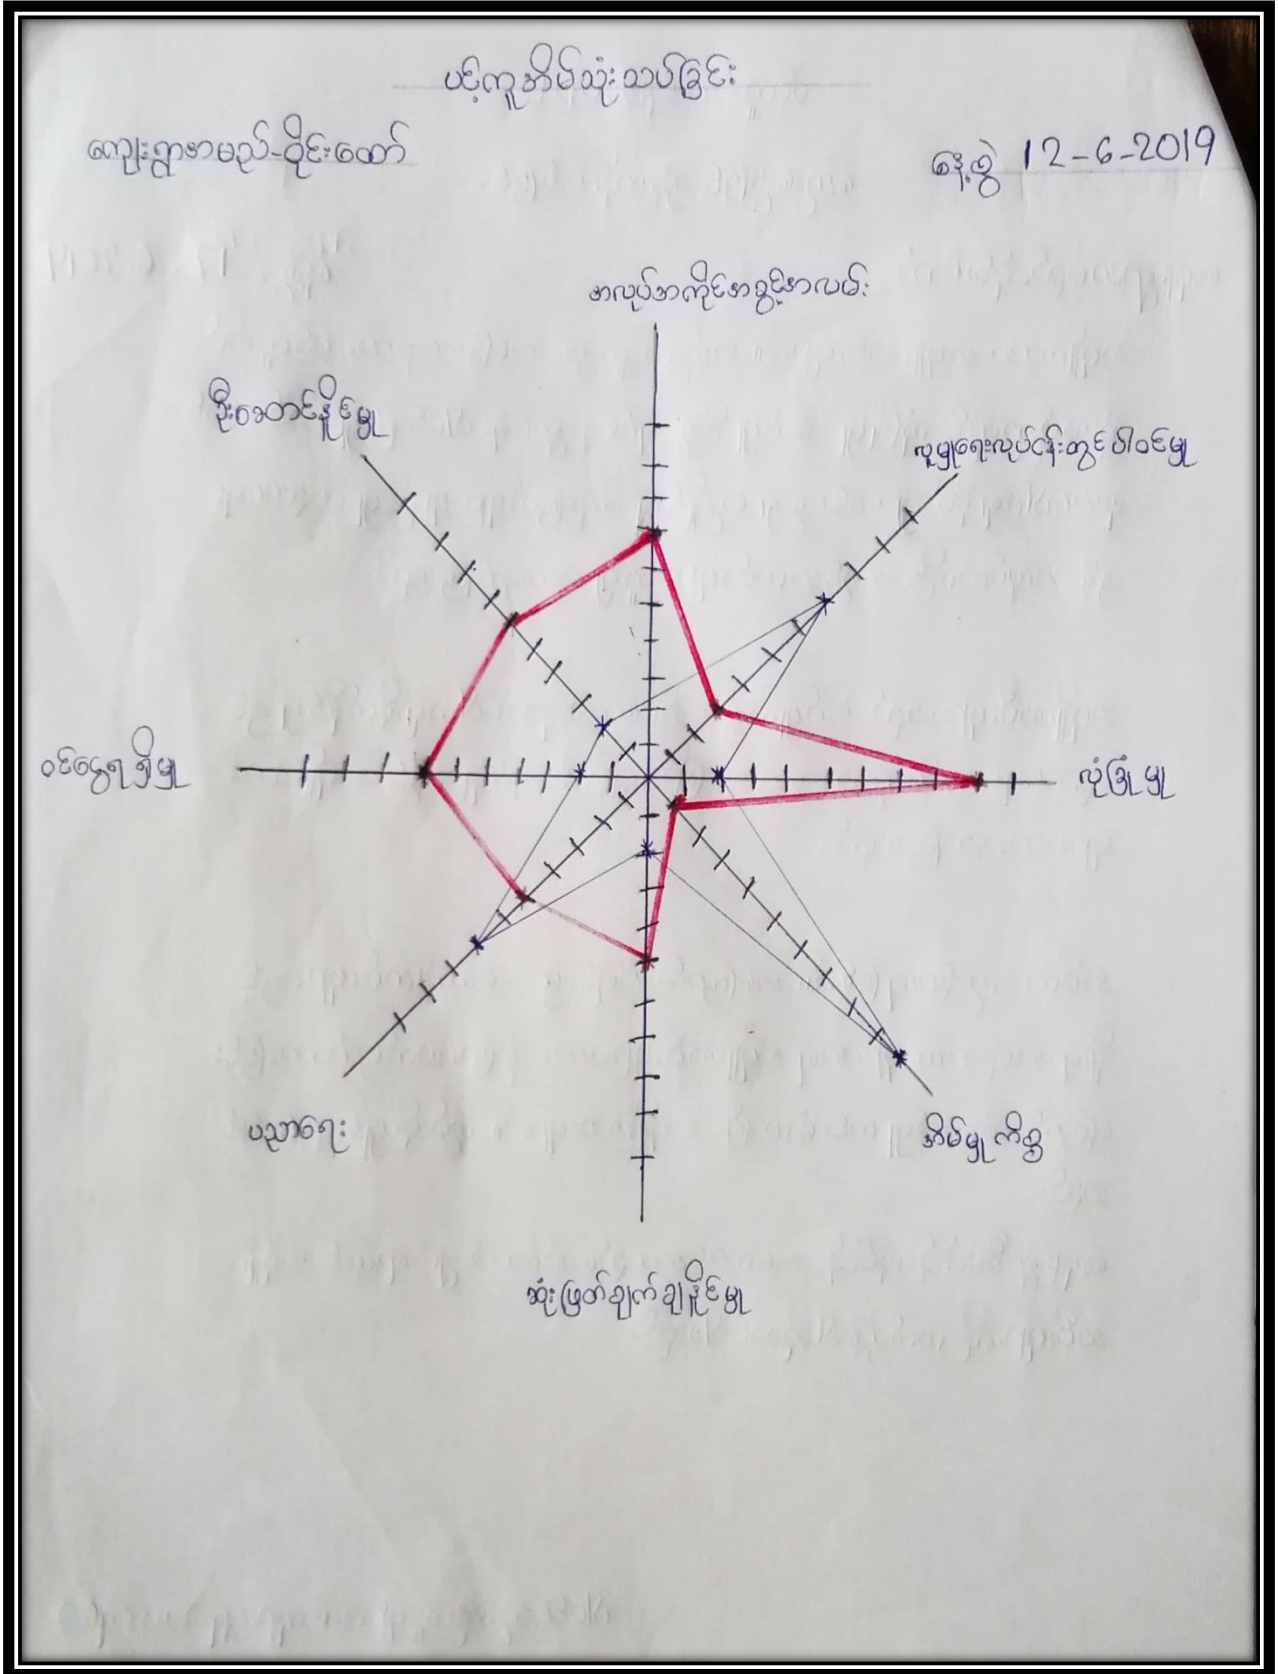 ပင့်ကူအိမ်သုံးသပ်ခြင်း
ကျေးရွာအမည်-ဝိုင်းတော်
နေ့စွဲ 12-6-2019
အလုပ်အကိုင်အခွင့်အလမ်း
ဦးဆောင်နိုင်မှု
လူမှုရေးလုပ်ငန်းတွင်ပါဝင်မှု
ဝင်ငွေရရှိမှု
လုံခြုံမှု
ပညာရေး
အိမ်မှုကိစ္စ
ဆုံးဖြတ်ချက်ချနိုင်မှု